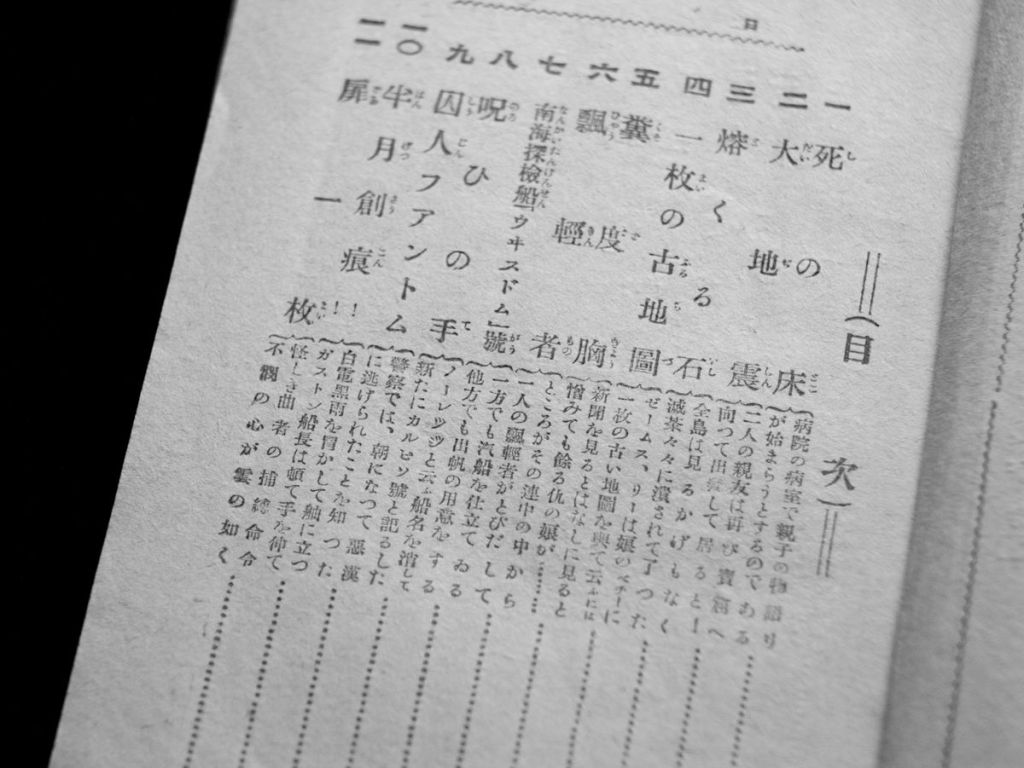 (目次)
一 死の床
病院の病室で親子の物語り
が始まらうとするのである
二 大地震
二人の親友は再び寶洞へ
向つて出發して居ると—
三 熔くる石
全島は見るかげもなく
滅茶々々に潰されて了つた
四 一枚の古地圖
ゼームス、リーは娘のベチーに
一枚の古い地圖を與て云ふには
五 糞度胸
新聞を見るとはなしに見ると
憎みても餘る仇の娘が……
六 飄輕者
ところがその連中の中から
一人の飄輕者がとびだして
七 南海探檢船「ウヰスドム」號
一方でも汽船を仕立てゐる
他方でも出帆の用意をする
八 呪ひの手
ノーレッツと云ふ船名を消して
新たにカルビソ號と記るした
九 囚人フアントム
警察では、朝になつて惡漢
に逃げられたことを知つた
一〇 半月創痕!!
白電黑雨を冒かして舳に立つ
ガストン船長は頓て手を伸て
一一 扉一枚
怪しき曲者の捕縛命令
不の心が雲の如く